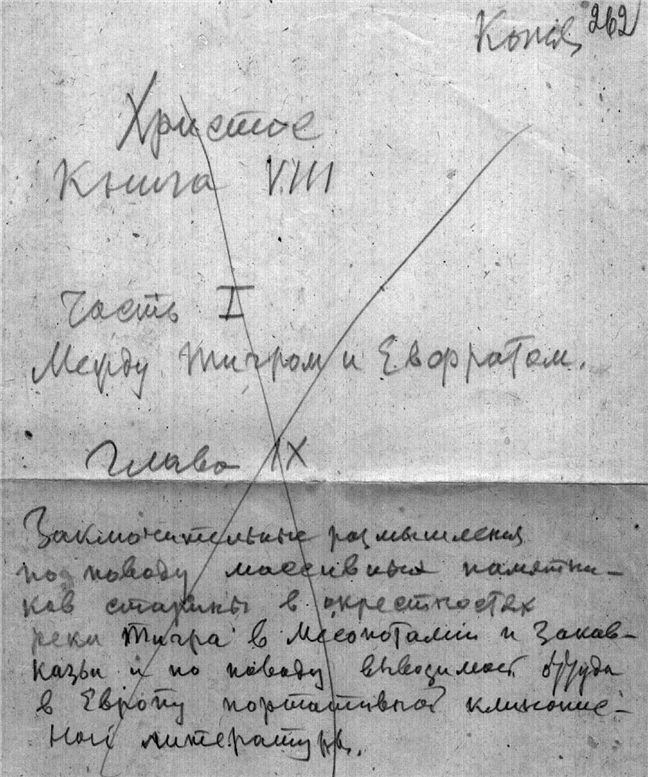 Конец 262
Христос
Книга VIII
Часть I
Между Тигром и Евфратом.
Глава IX
Заключительные размышления
по поводу массивных памятни-
ков старины в окрестностях
реки Тигра в Месопотамии и Закав-
казьи и по поводу вывозимой оттуда
в Европу портативной клинопис-
ной литературы.